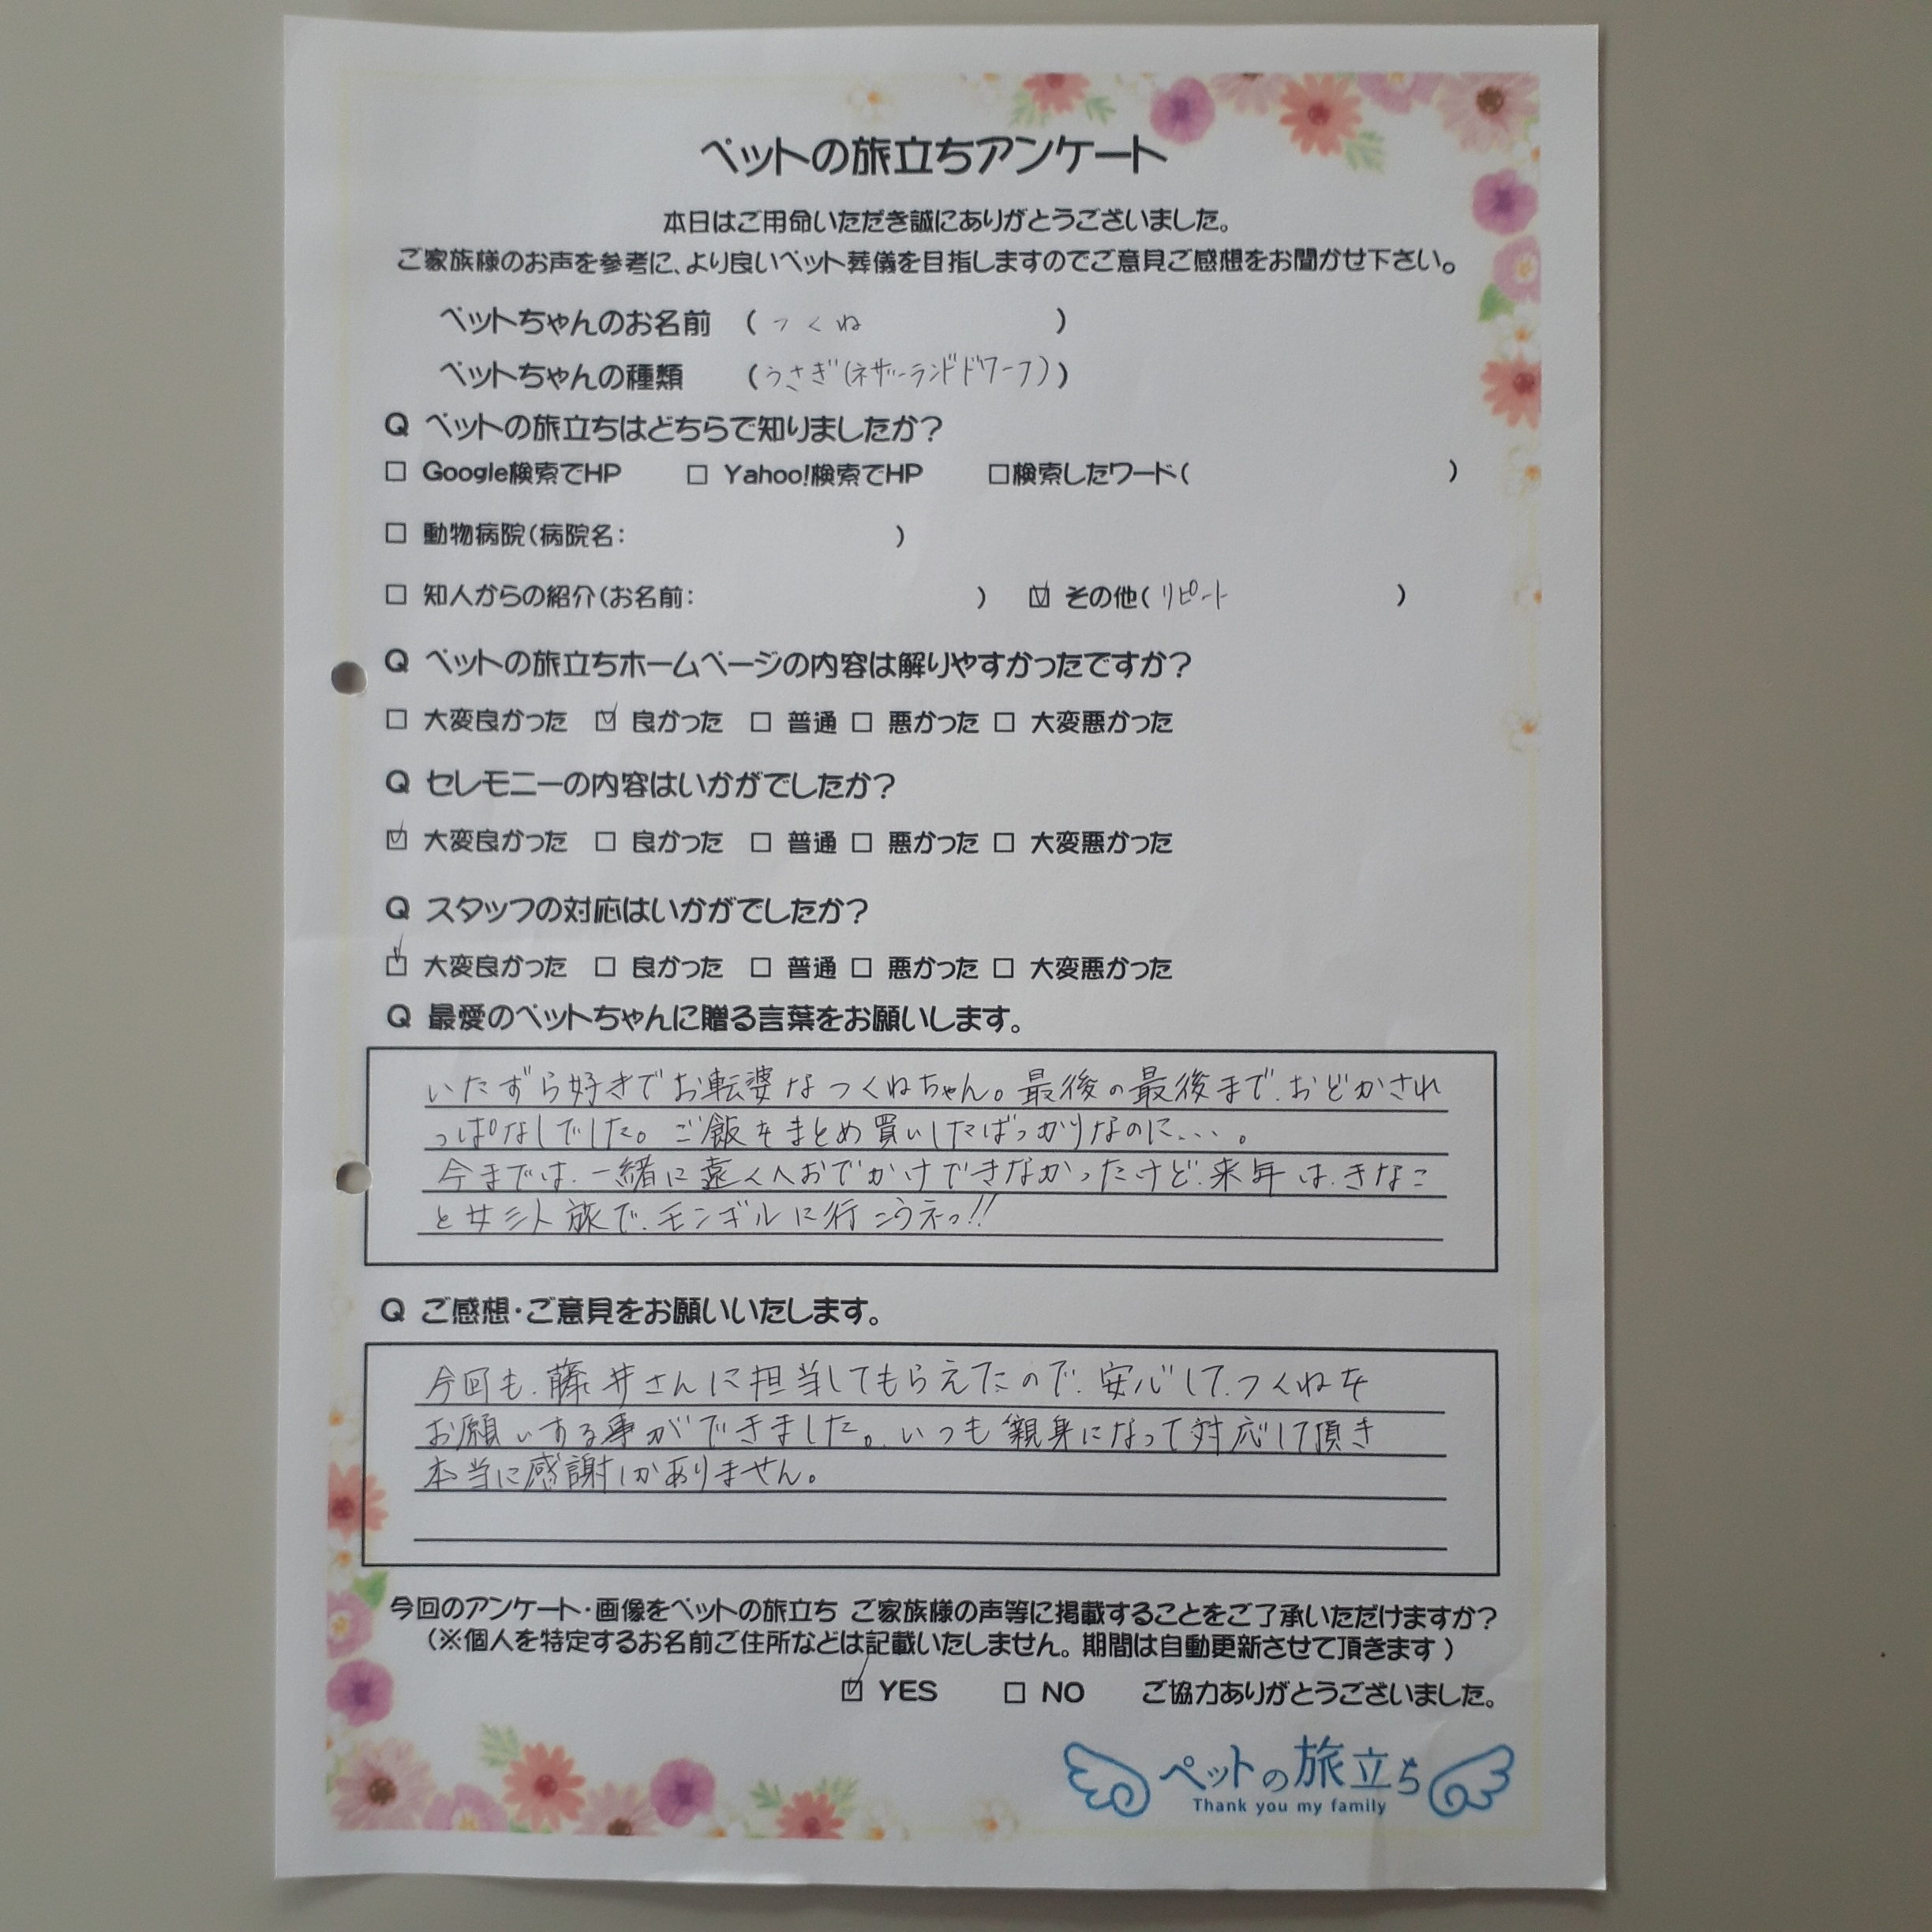 ペットの旅立ちアンケート
本日はご用命いただき誠にありがとうございました。
ご家族様のお声を参考に、より良いペット葬儀を目指しますのでご意見ご感想をお聞かせ下さい。
ペットちゃんのお名前 (つくね)
ペットちゃんの種類 (うさぎ(ネザーランドドワーフ))
Q ペットの旅立ちはどちらで知りましたか?
□ Google検索でHP □ Yahoo!検索でHP □検索したワード( )
□ 動物病院(病院名: )
□ 知人からの紹介(お名前: ) ☑ その他(リピート)
Q ペットの旅立ちホームページの内容は解りやすかったですか?
□ 大変良かった ☑ 良かった □ 普通 □ 悪かった □ 大変悪かった
Q セレモニーの内容はいかがでしたか?
☑ 大変良かった □ 良かった □ 普通 □ 悪かった □ 大変悪かった
Q スタッフの対応はいかがでしたか?
☑ 大変良かった □ 良かった □ 普通 □ 悪かった □ 大変悪かった
Q 最愛のペットちゃんに贈る言葉をお願いします。
いたずら好きでお転婆なつくねちゃん。最後の最後まで、おどかされ
っぱなしでした。ご飯をまとめ買いしたばっかりなのに、、、。
今までは、一緒に遠くへおでかけできなかったけど、来年は、きなこ
と女三人旅で、モンゴルに行こうネっ!!
Q ご感想・ご意見をお願いいたします。
今回も、藤井さんに担当してもらえたので、安心して、つくねを
お願いする事ができました。いつも親身になって対応して頂き
本当に感謝しかありません。
今回のアンケート・画像をペットの旅立ち ご家族様の声等に掲載することをご了承いただけますか?
(※個人を特定するお名前ご住所などは記載いたしません。期間は自動更新させて頂きます)
☑ YES □ NO ご協力ありがとうございました。
ペットの旅立ち
Thank you my family